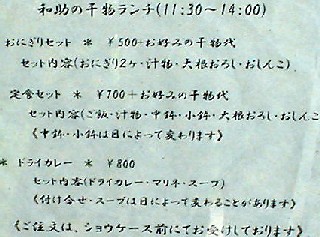 和助の干物ランチ(11:30〜14:00)
おにぎりセット * ¥500+お好みの干物代
セット内容(おにぎり2ケ・汁物・大根おろし・おしんこ)
定食セット * ¥700+お好みの干物代
セット内容(ご飯・汁物・中鉢・小鉢・大根おろし・おしんこ
《中鉢・小鉢は日によって変わります》
* ドライカレー * ¥800
セット内容(ドライカレー・マリネ・スープ)
《付け合せ・スープは日によって変わることがあります》
《ご注文は、ショウケース前にてお受けしております》